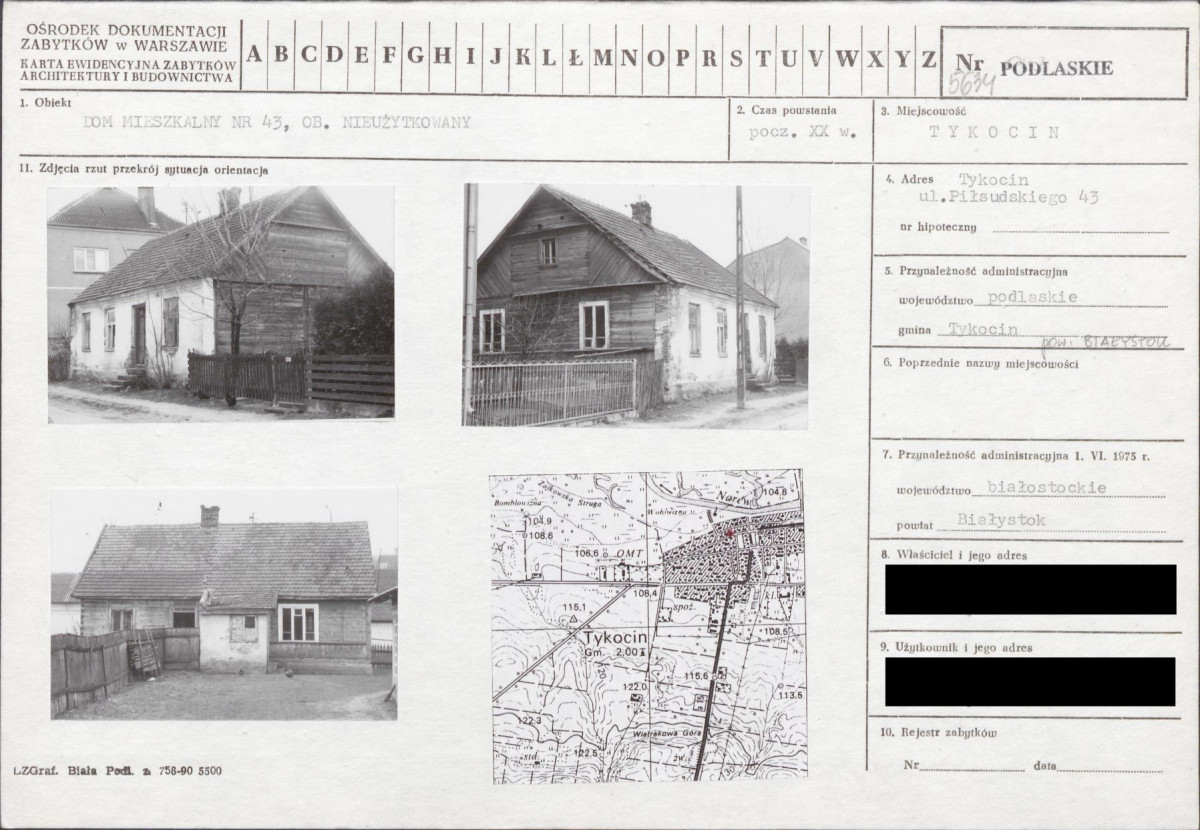 OŚRODEK DOKUMENTACJI
ZABYTKÓW w WARSZAWIE
KARTA EWIDENCYJNA ZABYTKÓW
ARCHITEKTURY I BUDOWNICTWA
A B C D E F G H I J K L Ł M N O P R S T U V W X Y Z
Nr PODLASKIE
5634
1. Obiekt
DOM MIESZKALNY NR 43, OB. NIEUŻYTKOWANY
2. Czas powstania
pocz. XX w.
3. Miejscowość
TYKOCIN
11. Zdjęcia rzut przekrój sytuacja orientacja
4. Adres Tykocin
ul.Piłsudskiego 43
nr hipoteczny
5. Przynależność administracyjna
województwo podlaskie
gmina Tykocin
pow. BIAŁYSTOK
6. Poprzednie nazwy miejscowości
7. Przynależność administracyjna 1. VI. 1975 r.
województwo białostockie
powiat Białystok
8. Właściciel i jego adres
9. Użytkownik i jego adres
10. Rejestr zabytków
Nr data
Zajkowska Struga
Narew
104.8
104.9
108.6
106.6
OMT
108.4
115.1
spoż.
108.5
Tykocin
Gm. 2,00
115.6
122.0
113.5
122.3
Wiatrakowa Góra
122.5
std.
żw.
LZGraf. Biała Podl. z. 758-90 5500